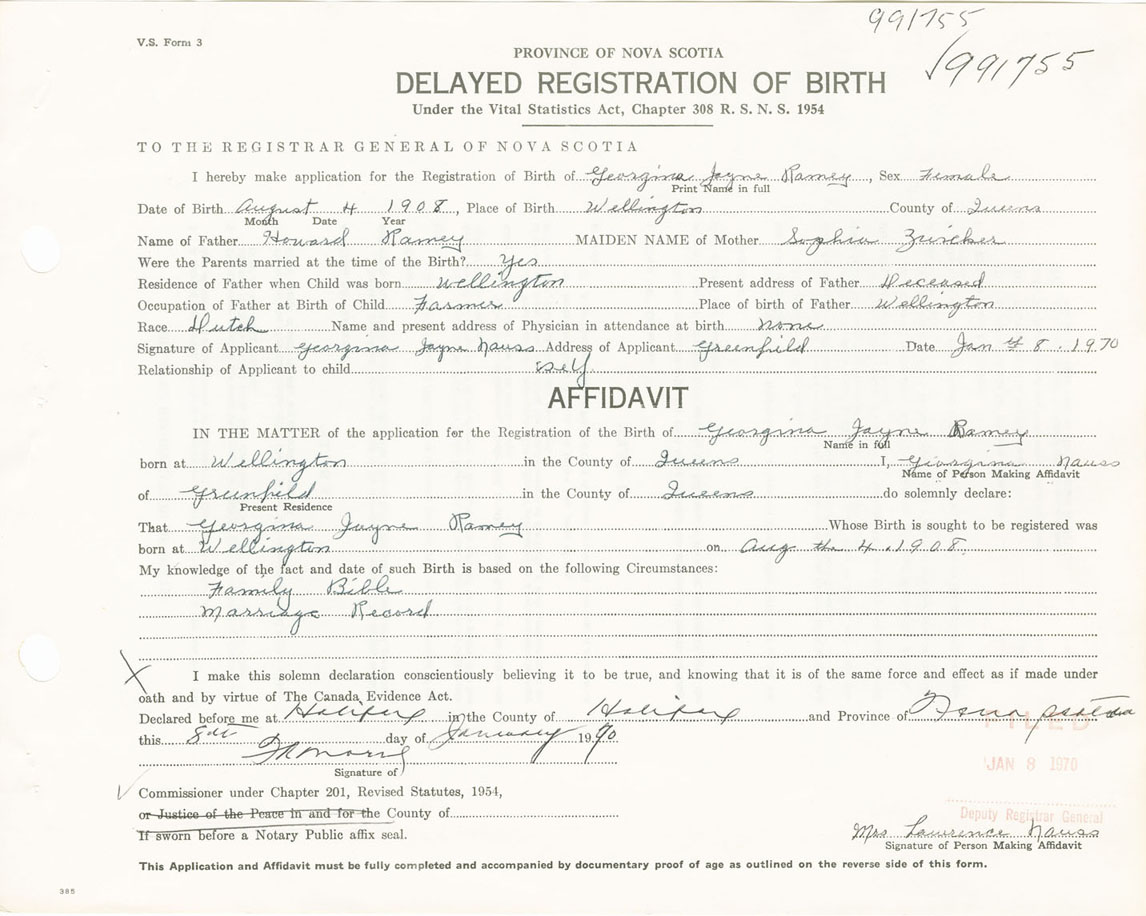 991755
V.S. Form 3
PROVINCE OF NOVA SCOTIA
√991755
DELAYED REGISTRATION OF BIRTH
Under the Vital Statistics Act, Chapter 308 R. S. N. S. 1954
TO THE REGISTRAR GENERAL OF NOVA SCOTIA
I hereby make application for the Registration of Birth of Georgina Jayne Ramey, Sex Female
Print Name in full
Date of Birth August 4 1908, Place of Birth Wellington County of Queens
Month Date Year
Name of Father Howard Ramey MAIDEN NAME of Mother Sophia Zwicker
Were the Parents married at the time of the Birth? Yes
Residence of Father when Child was born Wellington Present address of Father Deceased
Occupation of Father at Birth of Child Farmer Place of birth of Father Wellington
Race Dutch Name and present address of Physician in attendance at birth none
Signature of Applicant Georgina Jayne Nauss Address of Applicant Greenfield Date Jan 8. 1970
Relationship of Applicant to child self
AFFIDAVIT
IN THE MATTER of the application for the Registration of the Birth of Georgina Jayne Ramey
Name in full
born at Wellington in the County of Queens I, Georgina Nauss
Name of Person Making Affidavit
of Greenfield in the County of Queens do solemnly declare:
Present Residence
That Georgina Jayne Ramey Whose Birth is sought to be registered was
born at Wellington on Aug the 4. 1908.
My knowledge of the fact and date of such Birth is based on the following Circumstances:
Family Bible
Marriage Record
X I make this solemn declaration conscientiously believing it to be true, and knowing that it is of the same force and effect as if made under
oath and by virtue of The Canada Evidence Act.
Declared before me at Halifax in the County of Halifax and Province of Nova Scotia
FILED
this 8th day of January 1970
JAN 8 1970
Signature of
Commissioner under Chapter 201, Revised Statutes, 1954,
or Justice of the Peace in and for the County of
Deputy Registrar General
If sworn before a Notary Public affix seal.
Mrs Lawrence Nauss
Signature of Person Making Affidavit
This Application and Affidavit must be fully completed and accompanied by documentary proof of age as outlined on the reverse side of this form.
385